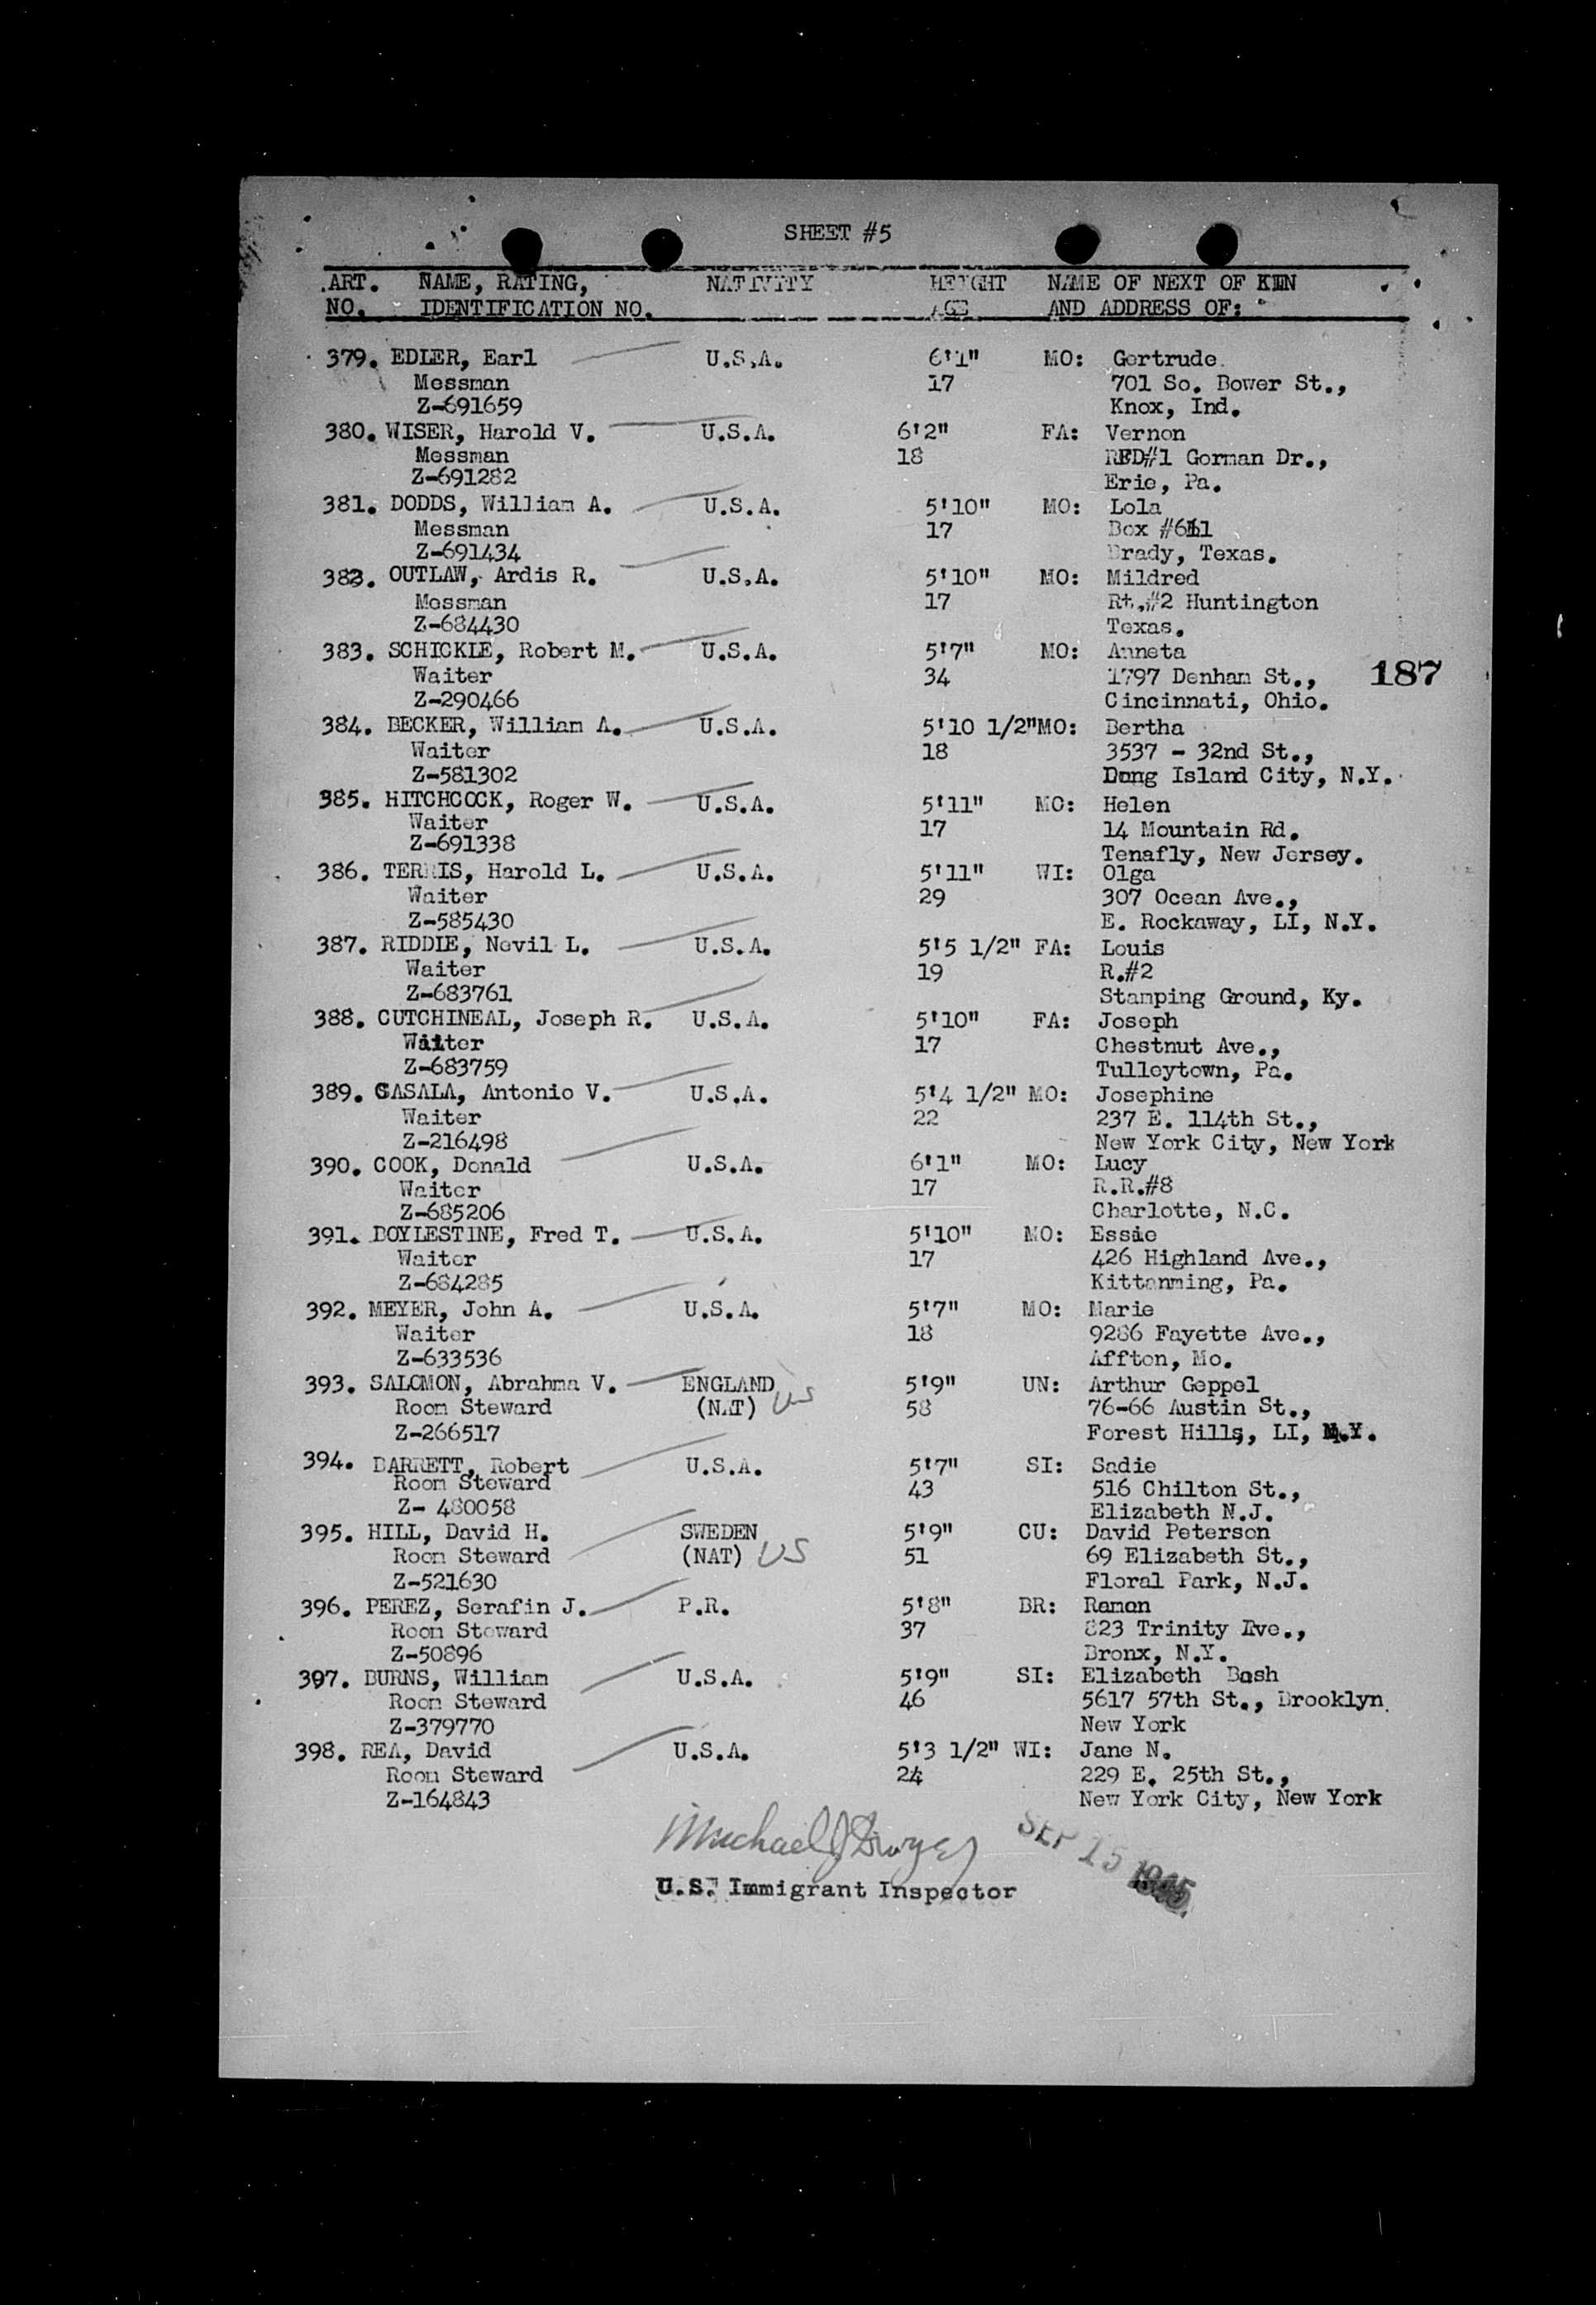 SHEET #5
ART. NAME, RATING, NATIVITY HEIGHT NAME OF NEXT OF KIN
NO. IDENTIFICATION NO. AGE AND ADDRESS OF:
379. EDLER, Earl U.S.A. 6'1" MO: Gertrude
Messman 17 701 So. Bower St.,
Z-691659 Knox, Ind.
380. WISER, Harold V. U.S.A. 6'2" FA: Vernon
Messman 18 RFD#1 Gorman Dr.,
Z-691282 Erie, Pa.
381. DODDS, William A. U.S.A. 5'10" MO: Lola
Messman 17 Box #611
Z-691434 Brady, Texas.
382. OUTLAW, Ardis R. U.S.A. 5'10" MO: Mildred
Messman 17 Rt.#2 Huntington
Z-684430 Texas.
383. SCHICKLE, Robert M. U.S.A. 5'7" MO: Anneta
Waiter 34 1797 Denham St., 187
Z-290466 Cincinnati, Ohio.
384. BECKER, William A. U.S.A. 5'10 1/2" MO: Bertha
Waiter 18 3537 - 32nd St.,
Z-581302 Long Island City, N.Y.
385. HITCHCOCK, Roger W. U.S.A. 5'11" MO: Helen
Waiter 17 14 Mountain Rd.
Z-691338 Tenafly, New Jersey.
386. TERRIS, Harold L. U.S.A. 5'11" WI: Olga
Waiter 29 307 Ocean Ave.,
Z-585430 E. Rockaway, LI, N.Y.
387. RIDDIE, Nevil L. U.S.A. 5'5 1/2" FA: Louis
Waiter 19 R.#2
Z-683761 Stamping Ground, Ky.
388. CUTCHINEAL, Joseph R. U.S.A. 5'10" FA: Joseph
Waiter 17 Chestnut Ave.,
Z-683759 Tulleytown, Pa.
389. CASALA, Antonio V. U.S.A. 5'4 1/2" MO: Josephine
Waiter 22 237 E. 114th St.,
Z-216498 New York City, New York
390. COOK, Donald U.S.A. 6'1" MO: Lucy
Waiter 17 R.R.#8
Z-685206 Charlotte, N.C.
391. BOYLESTINE, Fred T. U.S.A. 5'10" MO: Essie
Waiter 17 426 Highland Ave.,
Z-684285 Kittanming, Pa.
392. MEYER, John A. U.S.A. 5'7" MO: Marie
Waiter 18 9286 Fayette Ave.,
Z-633536 Affton, Mo.
393. SALOMON, Abrahma V. ENGLAND 5'9" UN: Arthur Geppel
Room Steward (NAT) US 58 76-66 Austin St.,
Z-266517 Forest Hills, LI, N.Y.
394. BARRETT, Robert U.S.A. 5'7" SI: Sadie
Room Steward 43 516 Chilton St.,
Z- 480058 Elizabeth N.J.
395. HILL, David H. SWEDEN 5'9" CU: David Peterson
Room Steward (NAT) US 51 69 Elizabeth St.,
Z-521630 Floral Park, N.J.
396. PEREZ, Serafin J. P.R. 5'8" BR: Ramon
Room Steward 37 823 Trinity Ave.,
Z-50896 Bronx, N.Y.
397. BURNS, William U.S.A. 5'9" SI: Elizabeth Bash
Room Steward 46 5617 57th St., Brooklyn
Z-379770 New York
398. REA, David U.S.A. 5'3 1/2" WI: Jane N.
Room Steward 24 229 E. 25th St.,
Z-164843 New York City, New York
Michael J Dwyer SEP 15 1945
U.S. Immigrant Inspector